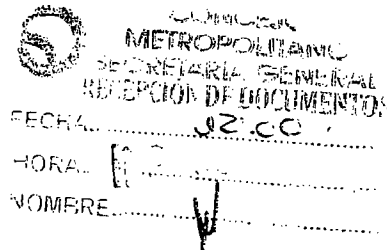 CONCEJO
METROPOLITANO
SECRETARIA GENERAL
RECEPCIÓN DE DOCUMENTOS
FECHA
HORA
NOMBRE